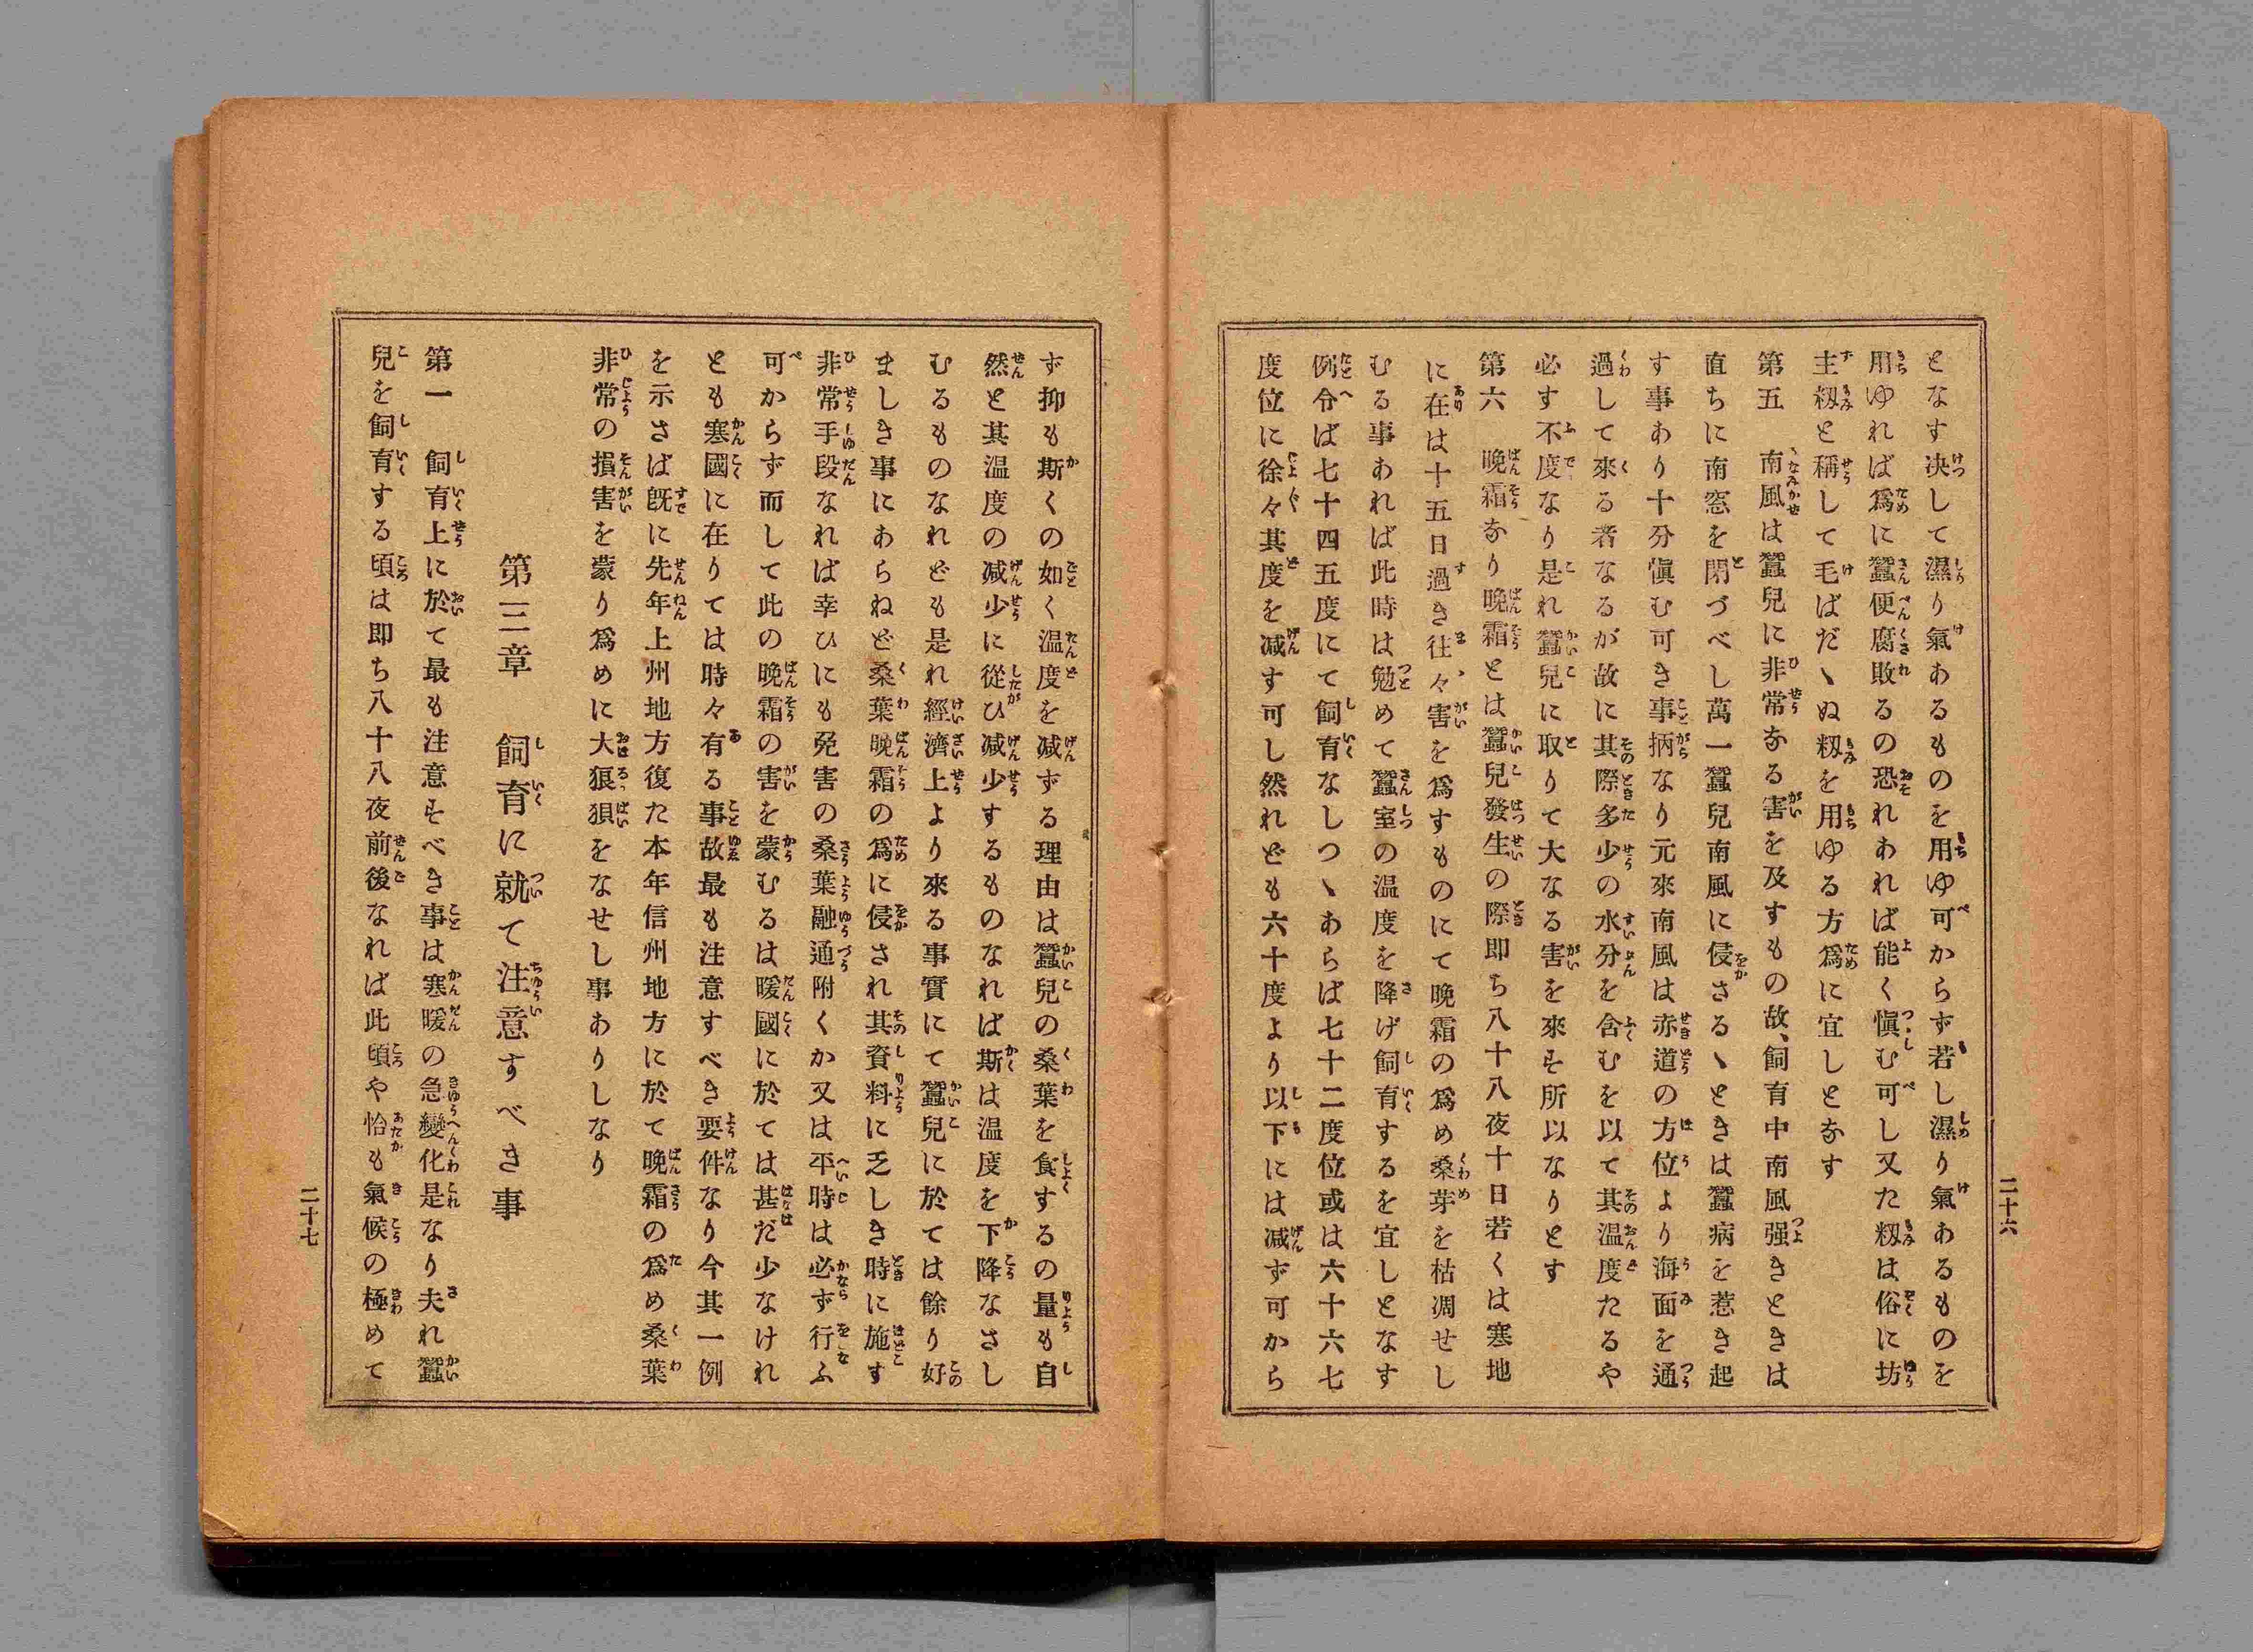 二十六
となす決して濕り氣あるものを用ゆ可からず若し濕り氣あるものを
用ゆれば爲に蠶便腐敗るの恐れあれば能く愼む可し又た籾は俗に坊
主籾と稱して毛ばだゝぬ籾を用ゆる方爲に宜しとなす
第五　南風は蠶兒に非常なる害を及すもの故、飼育中南風强きときは
直ちに南窓を閉づべし萬一蠶兒南風に侵さるゝときは蠶病を惹き起
す事あり十分愼む可き事柄なり元來南風は赤道の方位より海面を通
過して來る者なるが故に其際多少の水分を含むを以て其温度たるや
必す不度なり是れ蠶兒に取りて大なる害を來す所以なりとす
第六　晩霜なり晩霜とは蠶兒發生の際即ち八十八夜十日若くは寒地
に在は十五日過き往々害を爲すものにて晩霜の爲め桑芽を枯凋せし
むる事あれば此時は勉めて蠶室の温度を降げ飼育するを宜しとなす
例令ば七十四五度にて飼育なしつゝあらば七十二度位或は六十六七
度位に徐々其度を减す可し然れども六十度より以下には减ず可から
ず抑も斯くの如く温度を减ずる理由は蠶兒の桑葉を食するの量も自
然と其温度の减少に從ひ减少するものなれば斯は温度を下降なさし
むるものなれども是れ經濟上より來る事實にて蠶兒に於ては餘り好
ましき事にあらねど桑葉晩霜の爲に侵され其資料に乏しき時に施す
非常手段なれば幸ひにも免害の桑葉融通附くか又は平時は必ず行ふ
可からず而して此の晩霜の害を蒙むるは暖國に於ては甚だ少なけれ
とも寒國に在りては時々有る事故最も注意すべき要件なり今其一例
を示さば旣に先年上州地方復た本年信州地方に於て晩霜の爲め桑葉
非常の損害を蒙り爲めに大狼狽をなせし事ありしなり
第三章　飼育に就て注意すべき事
第一　飼育上に於て最も注意すべき事は寒暖の急變化是なり夫れ蠶
兒を飼育する頃は即ち八十八夜前後なれば此頃や恰も氣候の極めて
二十七